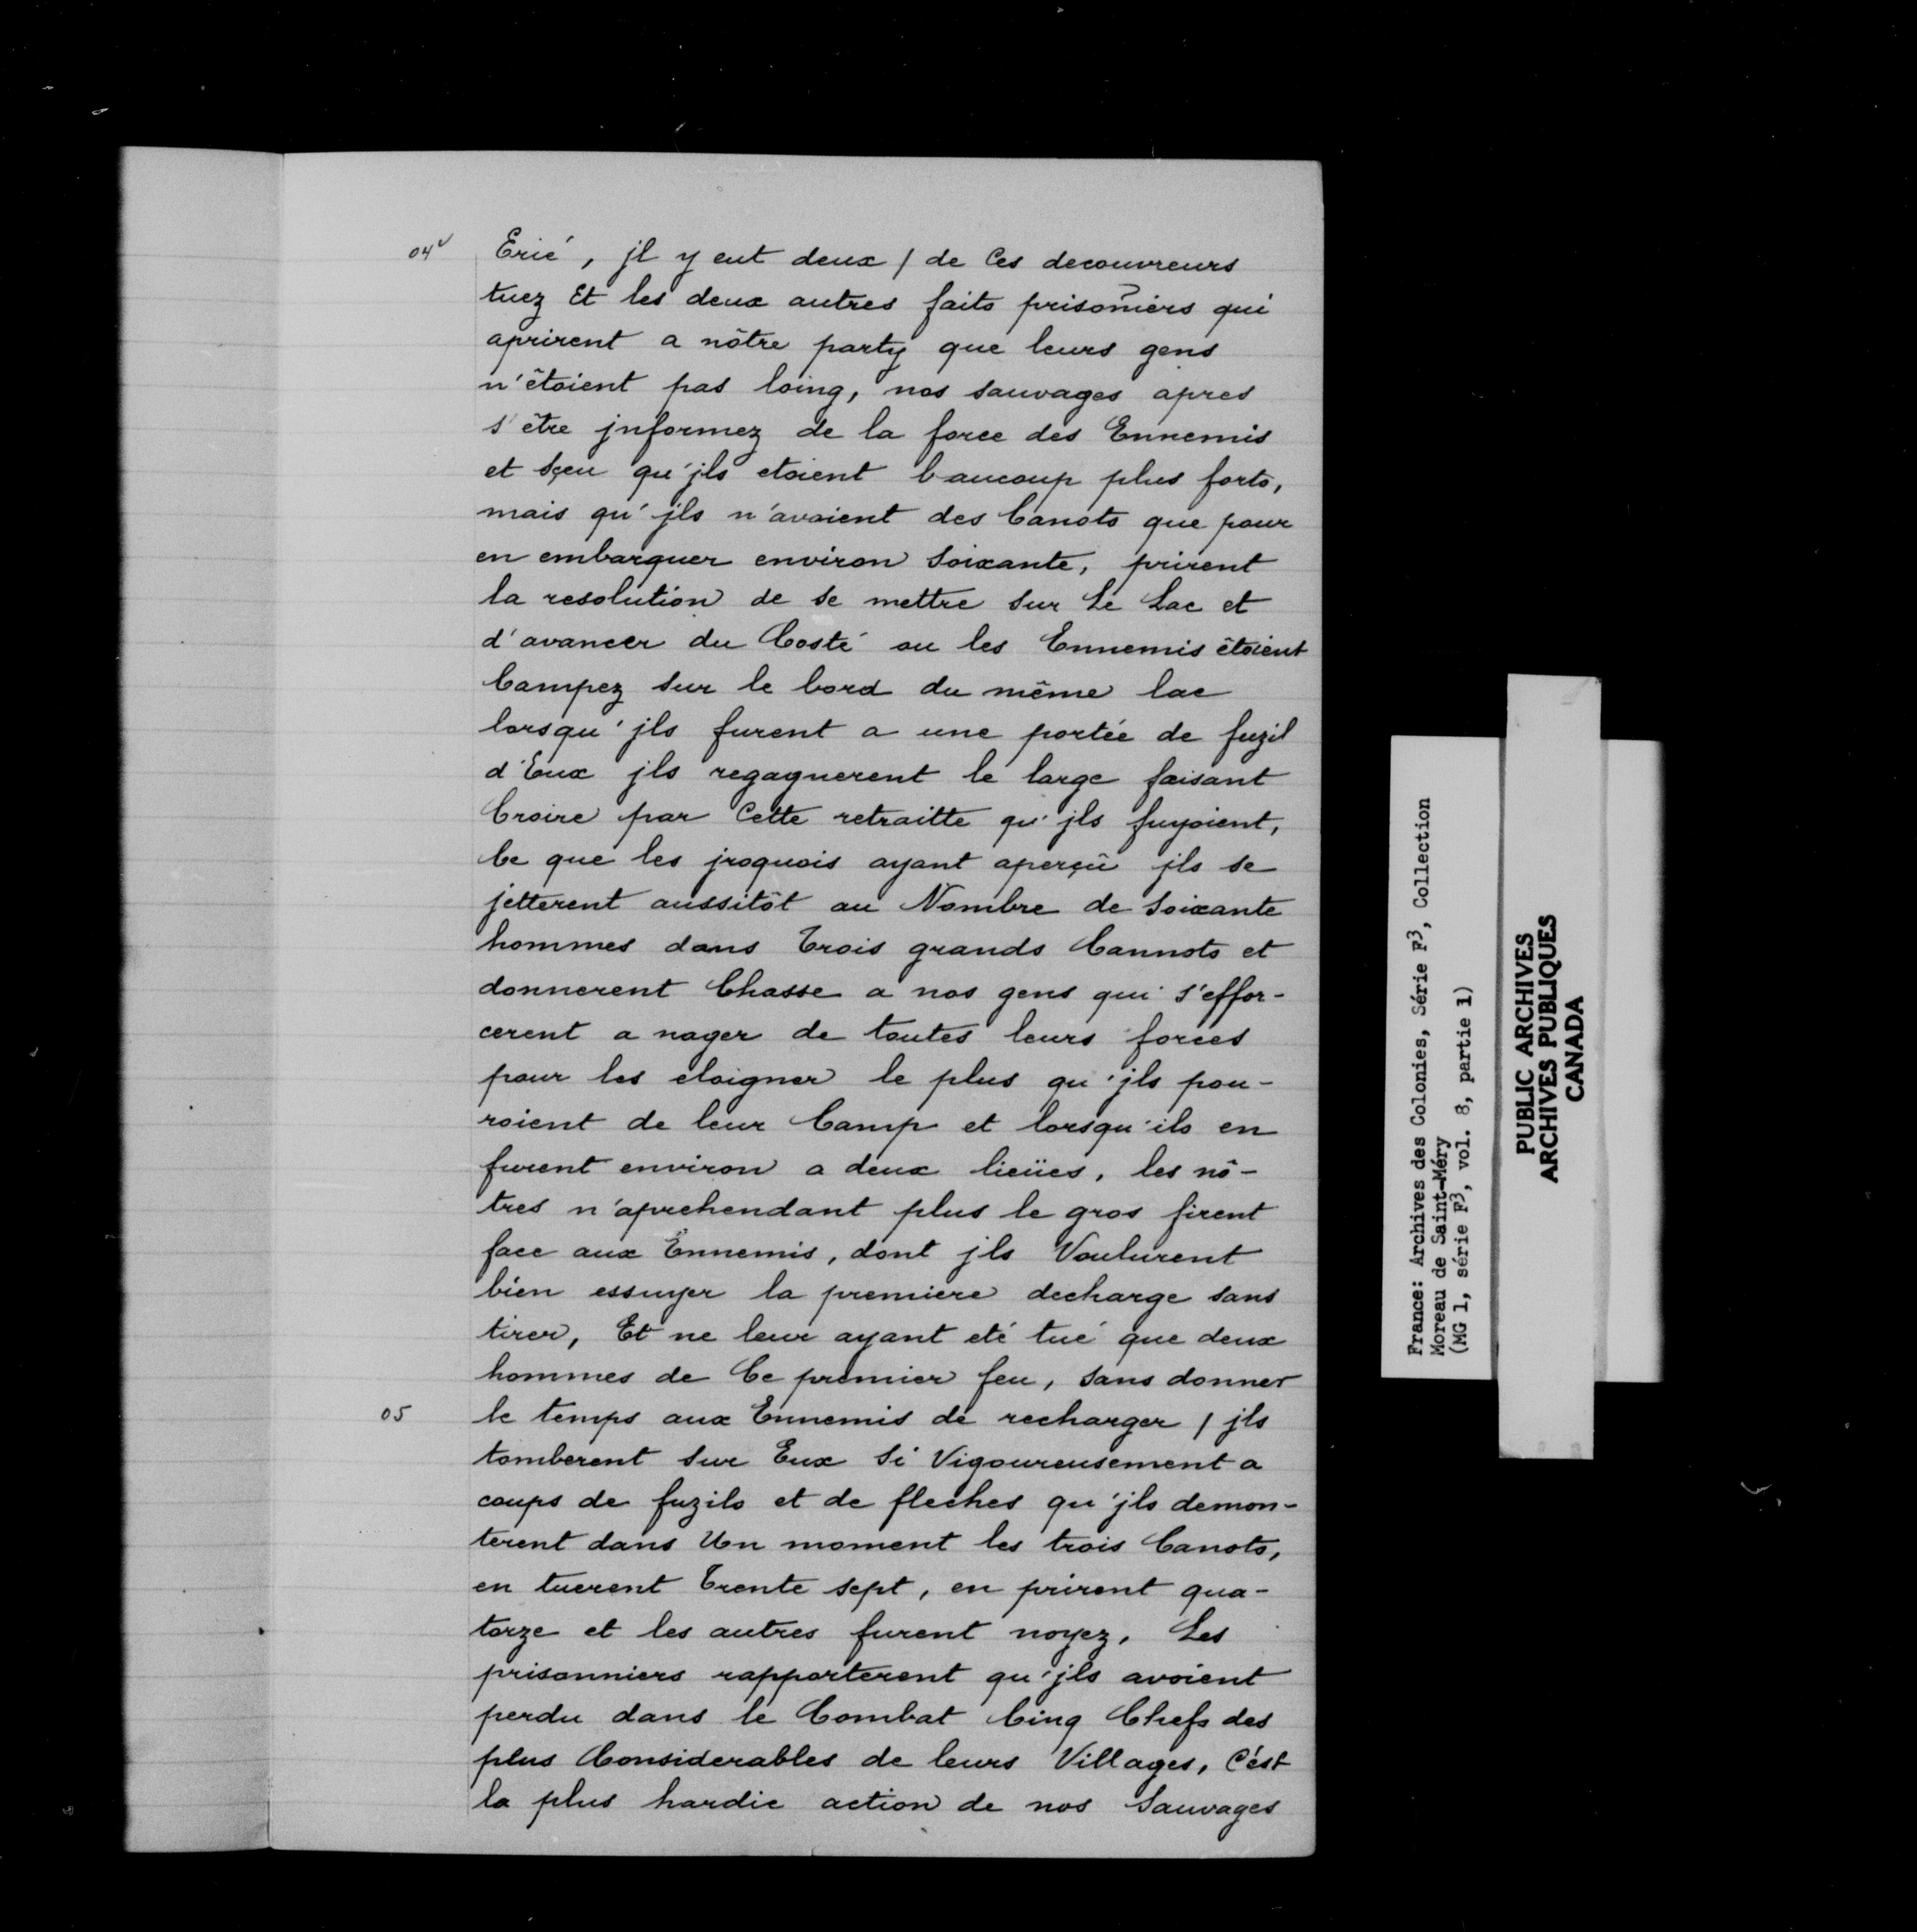 04v Erié, jl y eut deux / de Ces decouvreurs
tuez Et les deux autres faits prisoñiers qui
aprirent a nôtre party que leurs gens
n'étoient pas loing, nos sauvages apres
s'être jnformez de la force des Ennemis
et sçeu qu'jls etoient baucoup plus forts,
mais qu'jls n'avoient des Canots que pour
en embarquer environ soixante, prirent
la resolution de se mettre sur Le Lac et
d'avancer du Costé ou les Ennemis êtoient
Campez sur le bord du même lac
lorsqu'jls furent a une portée de fuzil
d'Eux jls regagnerent le large faisant
Croire par Cette retraitte qu'jls fuyoient,
Ce que les jroquois ayant aperçû jls se
jetterent aussitôt au Nombre de soixante
hommes dans Trois grands Cannots et
donnerent Chasse a nos gens qui s'effor-
cerent a nager de toutes leurs forces
pour les eloigner le plus qu'jls pou-
roient de leur Camp et lorsqu'ils en
furent environ a deux lieües, les nô-
tres n'aprehendant plus le gros firent
face aux Ennemis, dont jls Voulurent
bien essuyer la premiere decharge sans
tirer, Et ne leur ayant eté tué que deux
hommes de Ce premier feu, sans donner
05 le temps aux Ennemis de recharger / jls
tomberent sur Eux si Vigoureusement a
coups de fuzils et de fleches qu'jls demon-
terent dans Un moment les trois Canots,
en tuerent Trente sept, en prirent qua-
torze et les autres furent noyez, Les
prisonniers rapporterent qu'jls avoient
perdu dans le Combat Cinq Chefs des
plus Considerables de leurs Villages, C'ést
la plus hardie action de nos Sauvages
France: Archives des Colonies, Série F3, Collection
Moreau de Saint-Méry
(MG 1, série F3, vol. 8, partie 1)
PUBLIC ARCHIVES
ARCHIVES PUBLIQUES
CANADA